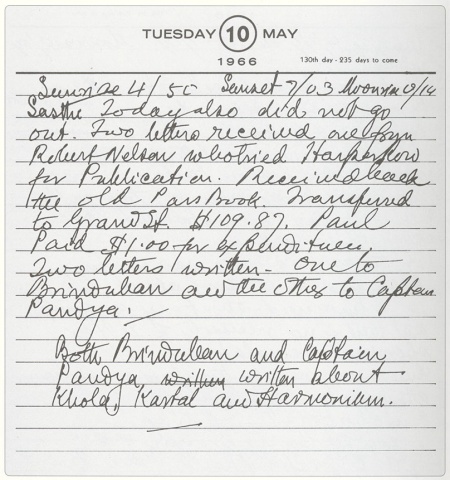 TUESDAY 10 MAY
1966
130th day - 235 days to come
Sunrise 4/50 Sunset 7/03 Moonrise 0/14
Sasthi Today also did not go
out. Two letters received one from
Robert Nelson who tried Harper &
for Publication. Received back
the old Pass Book. Transferred
to Grand St. $109.87. Paul
Paid $1.00 for expenditure.
Two letters written - One to
Brinduban and the other to Captain
Pandya. —
Both Brinduban and Captain
Pandya written written about
Khola, Kartal and Harmonium.